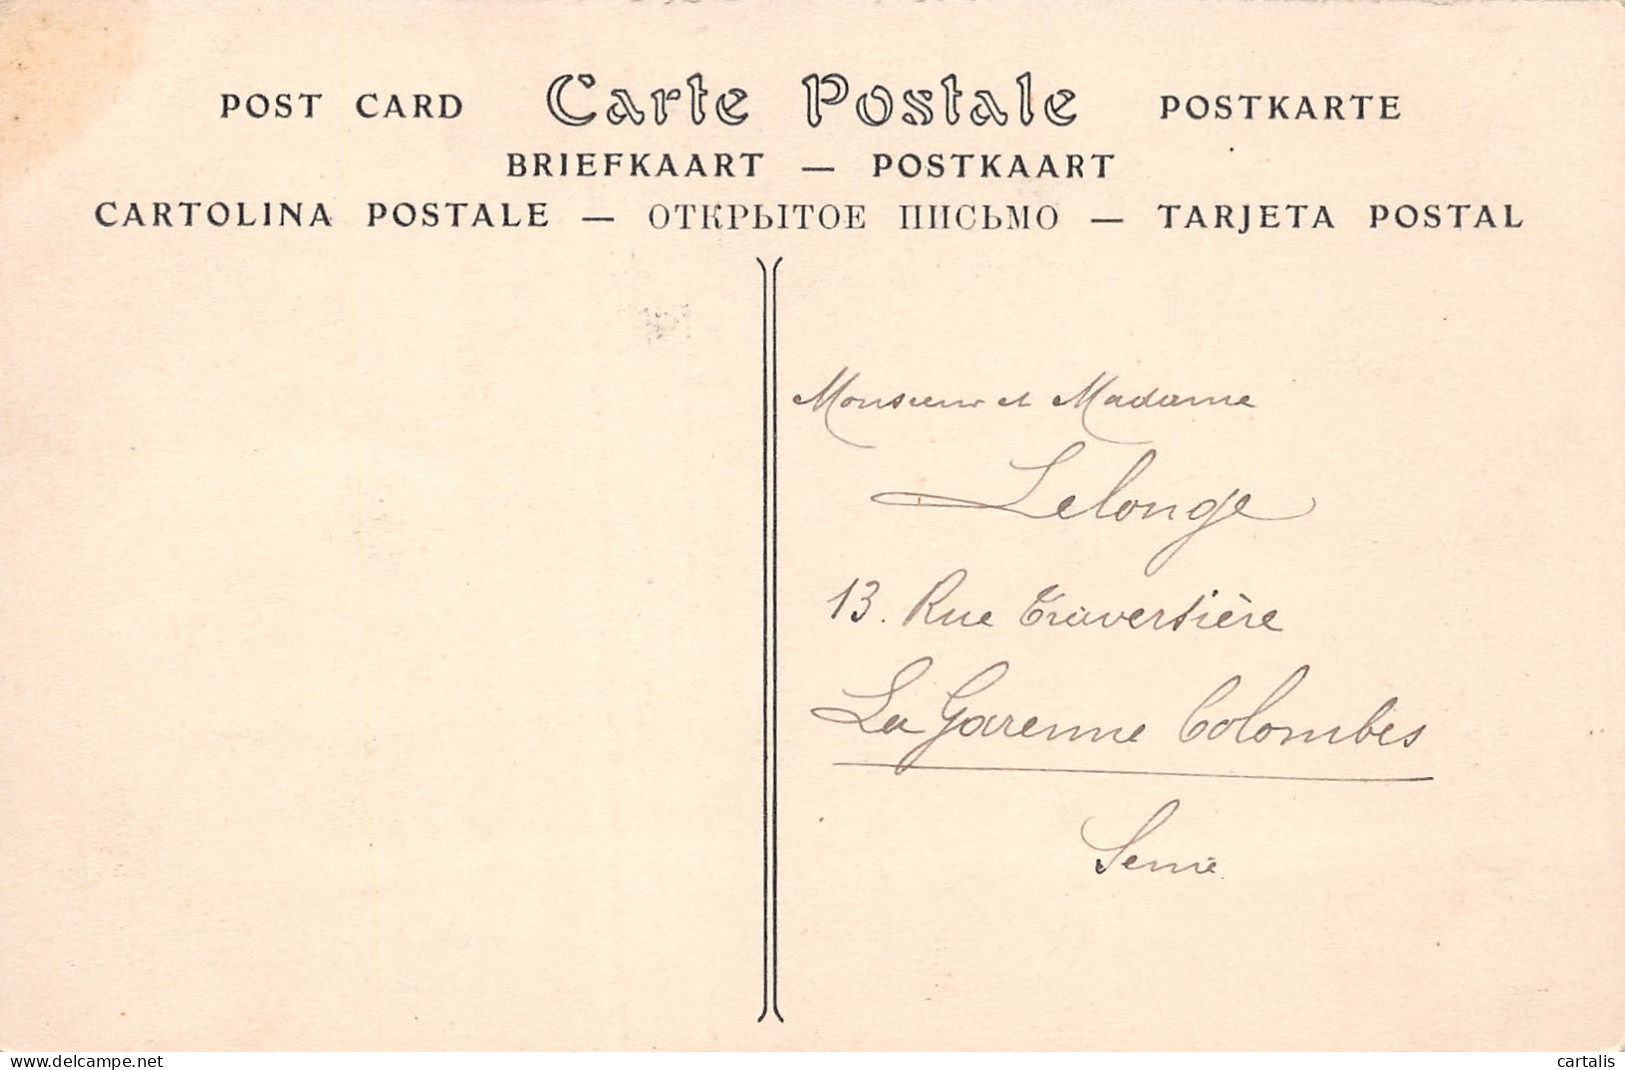 POST CARD Carte Postale POSTKARTE
BRIEFKAART — POSTKAART
CARTOLINA POSTALE — ОТКРЫТОЕ ПИСЬМО — TARJETA POSTAL
Monsieur et Madame
Lelonge
13. Rue Traversière
La Garenne Colombes
Seine
www.delcampe.net
cartalis